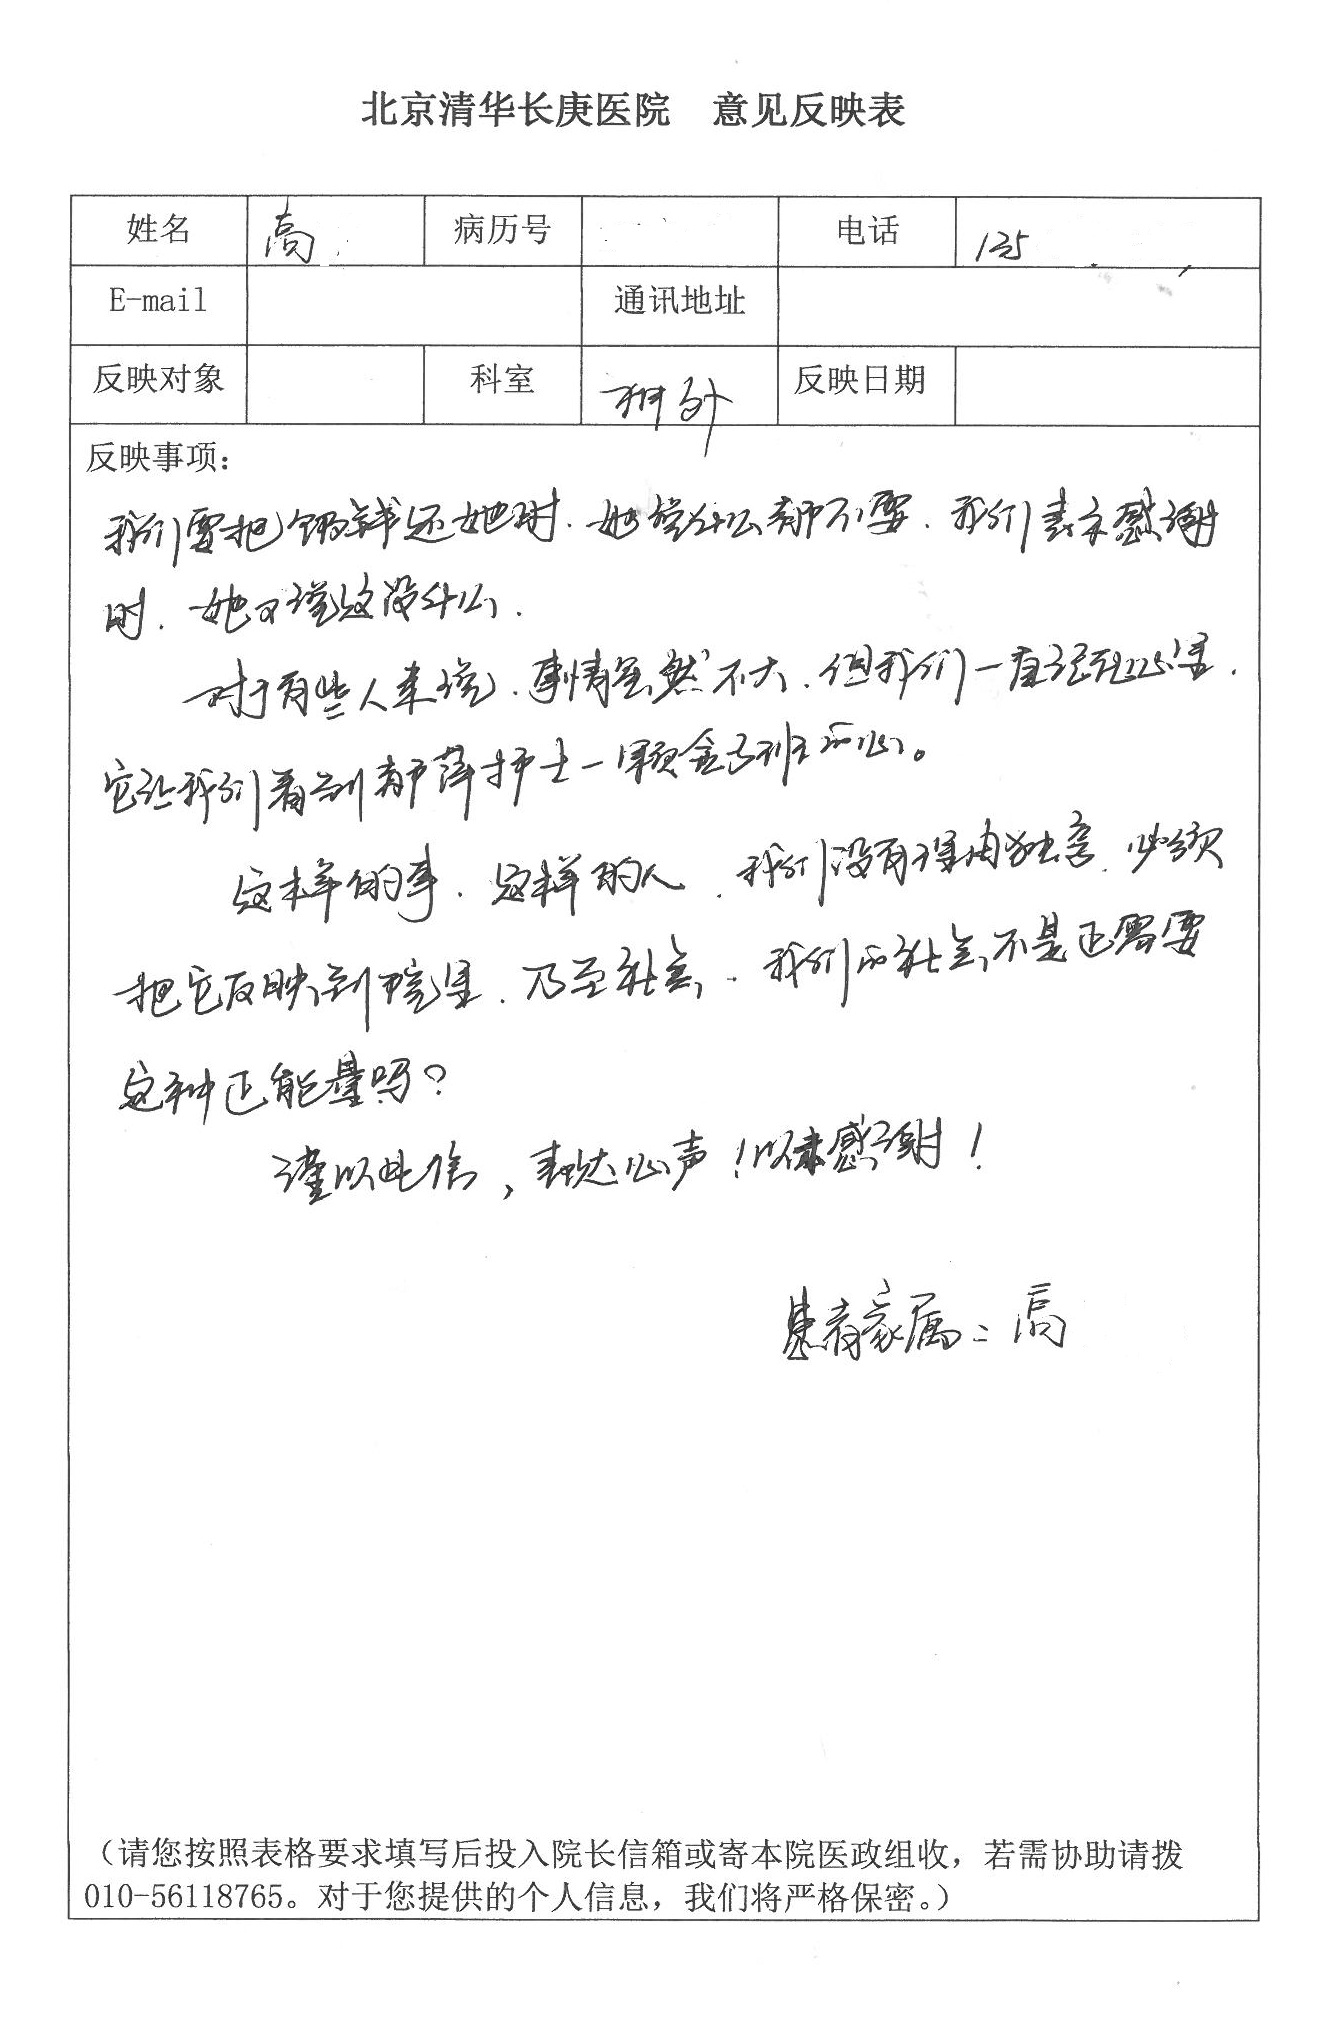 北京清华长庚医院 意见反映表
姓名 高 病历号 电话 135
E-mail 通讯地址
反映对象 科室 肝外 反映日期
反映事项：
我们要把饭钱还她时、她说什么都不要、我们表示感谢
时、她又说这没什么、
对于有些人来说、事情虽然不大、但我们一直记在心里、
它让我们看到郝萍护士一颗金子般的心。
这样的事、这样的人、我们没有理由独享、必须
把它反映到院里、乃至社会、我们的社会不是正需要
这种正能量吗？
谨以此信，表达心声！以表感谢！
患者家属：高
（请您按照表格要求填写后投入院长信箱或寄本院医政组收，若需协助请拨
010-56118765。对于您提供的个人信息，我们将严格保密。）